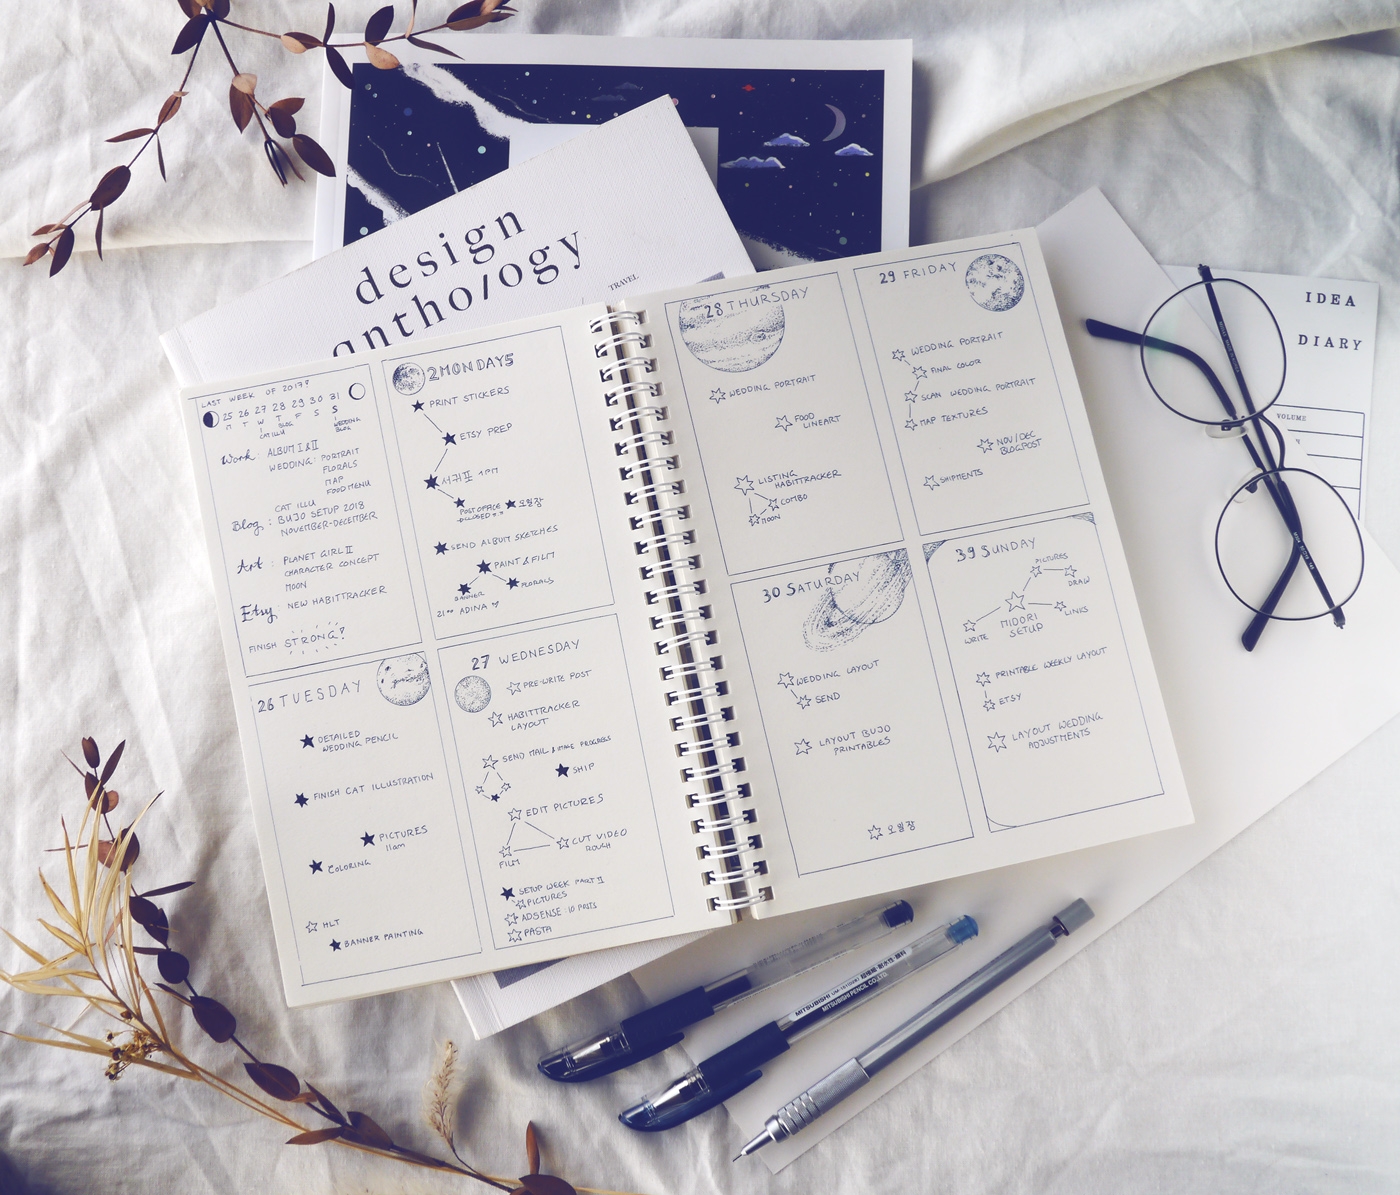 design
anthology
TRAVEL
IDEA
DIARY
VOLUME
LAST WEEK OF 2017?
25 26 27 28 29 30 31
M T W T F S S
CAT ILLU
BLOG
WEDDING
BLOG
Work: ALBUM I & II
WEDDING: PORTRAIT
FLORALS
MAP
FOOD MENU
CAT ILLU
Blog: BUJO SETUP 2018
NOVEMBER-DECEMBER
Art: PLANET GIRL II
CHARACTER CONCEPT
MOON
Etsy: NEW HABITTRACKER
FINISH STRONG!
2MONDAY5
PRINT STICKERS
ETSY PREP
서귀포 1PM
POST OFFICE
오일장
SEND ALBUM SKETCHES
PAINT & FILM
BANNER
FLORALS
21:00 ADINA
26 TUESDAY
DETAILED
WEDDING PENCIL
FINISH CAT ILLUSTRATION
PICTURES
11am
COLORING
HLT
BANNER PAINTING
27 WEDNESDAY
PRE-WRITE POST
HABITTRACKER
LAYOUT
SEND MAIL & MAKE PROGRESS
SHIP
EDIT PICTURES
CUT VIDEO
ROUGH
FILM
SETUP WEEK PART II
PICTURES
ADSENSE: 10 POSTS
PASTA
28 THURSDAY
WEDDING PORTRAIT
FOOD
LINEART
LISTING
HABITTRACKER
COMBO
MOON
29 FRIDAY
WEDDING PORTRAIT
FINAL COLOR
SCAN WEDDING PORTRAIT
MAP TEXTURES
NOV/DEC
BLOGPOST
SHIPMENTS
30 SATURDAY
WEDDING LAYOUT
SEND
LAYOUT BUJO
PRINTABLES
오일장
39 SUNDAY
PICTURES
DRAW
MIDORI
SETUP
LINKS
WRITE
PRINTABLE WEEKLY LAYOUT
ETSY
LAYOUT WEDDING
ADJUSTMENTS
MITSUBISHI
MITSUBISHI PENCIL CO.LTD.